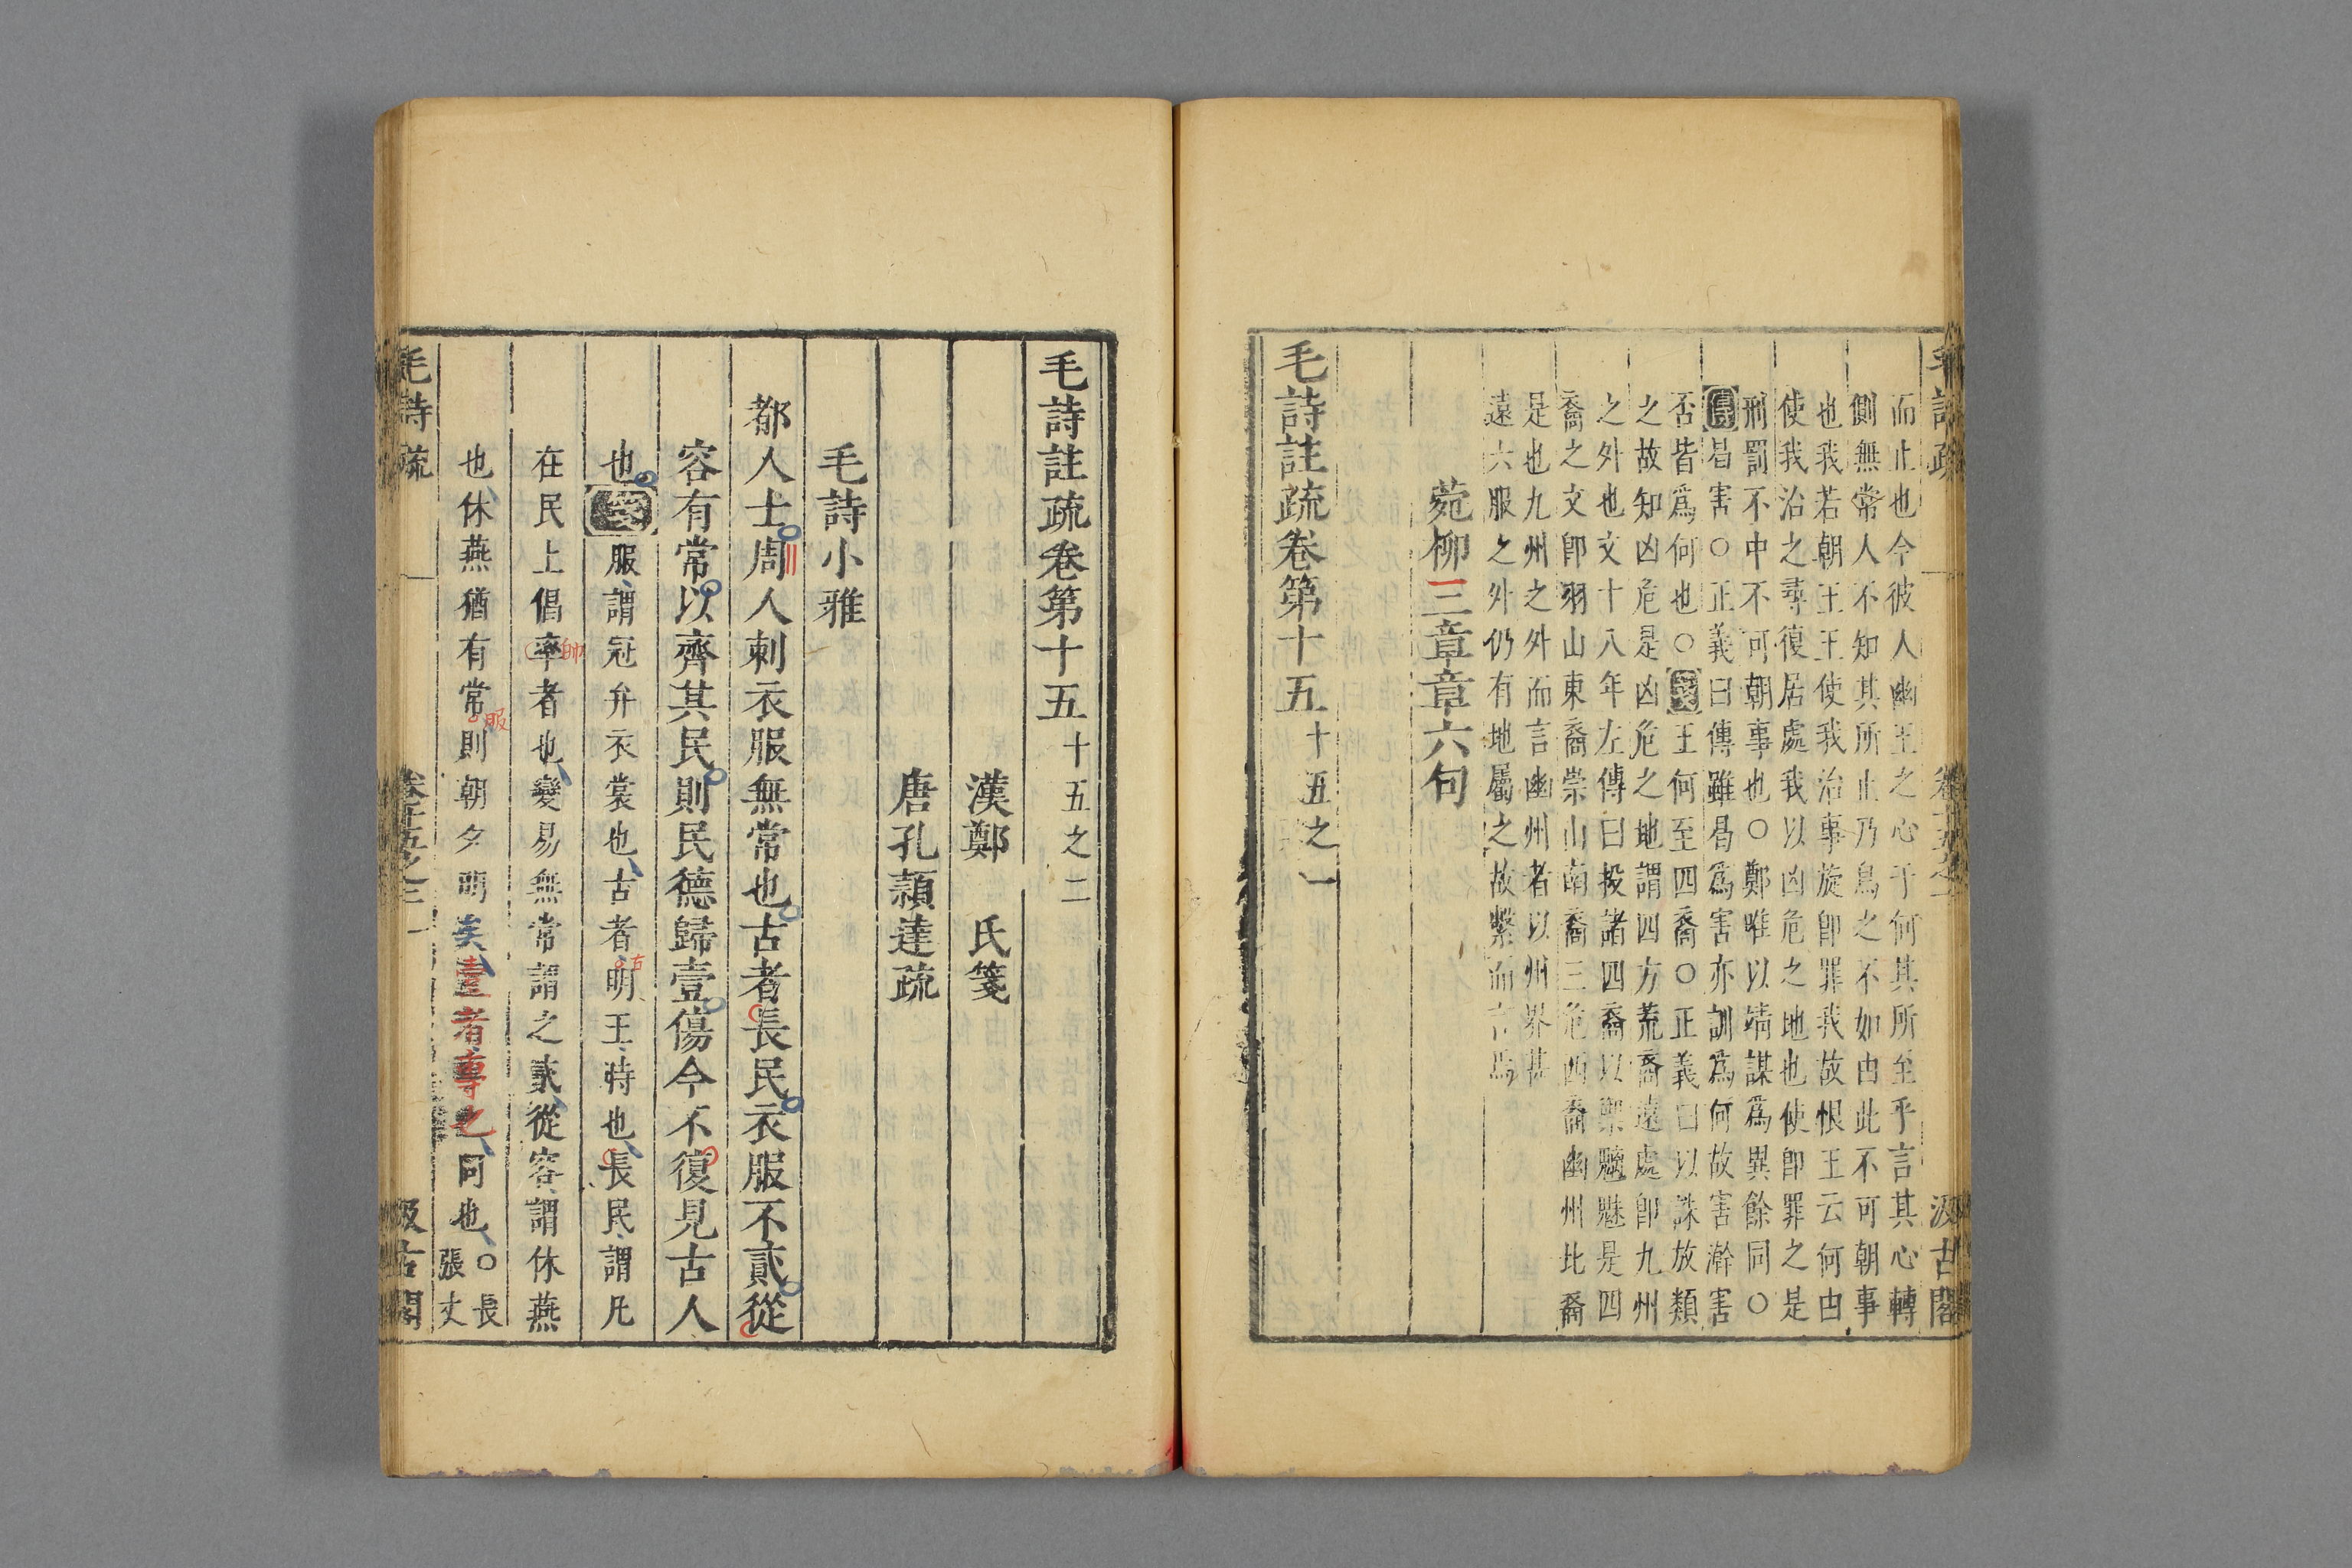 而止也今彼人幽王之心于何其所至乎言其心轉
側無常人不知其所止乃鳥之不如由此不可朝事
也我若朝王王使我治事旋即罪我故恨王云何由
使我治之尋復居處我以凶危之地也使即罪之是
刑罰不中不可朝事也○鄭唯以靖謀爲異餘同○
傳曷害○正義曰傳雖曷爲害亦訓爲何故害澣害
否皆爲何也○箋王何至四裔○正義曰以誅放類
之故知凶危是凶危之地謂四方荒裔遠處即九州
之外也文十八年左傳曰投諸四裔以禦魑魅是四
裔之文即羽山東裔崇山南裔三危西裔幽州北裔
是也九州之外而言幽州者以州界甚
遠六服之外仍有地屬之故繫而言焉
菀柳三章章六句
毛詩註疏卷第十五 十五之一
毛詩疏 汲古閣
毛詩註疏卷第十五 十五之二
漢鄭 氏箋
唐孔穎達疏
毛詩小雅
都人士周人刺衣服無常也古者長民衣服不貳從
容有常以齊其民則民德歸壹傷今不復見古人
也箋服謂冠弁衣裳也古者明王時也長民謂凡
古
在民上倡率者也變易無常謂之貳從容謂休燕
帥
也休燕猶有常則朝夕明矣壹者專也同也○長
張丈
服
毛詩疏 卷十五之二 一 汲古閣